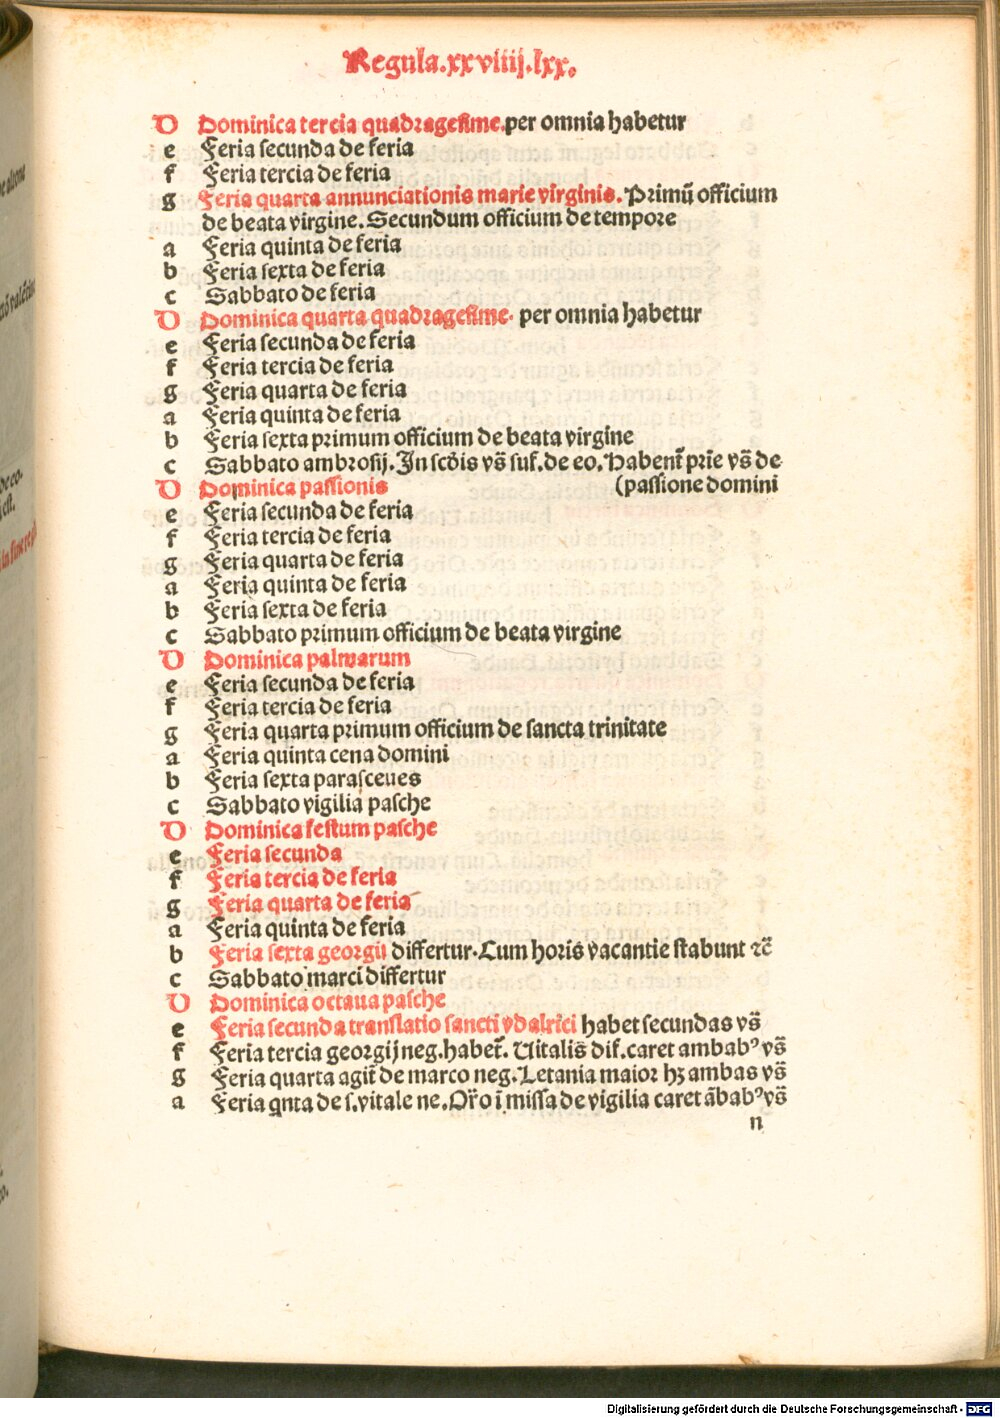 Regula.xxviiij.lxx.
D Dominica tercia quadragesime.per omnia habetur
e Feria secunda de feria
f Feria tercia de feria
g Feria quarta annunciationis marie virginis. Primū officium
de beata virgine. Secundum officium de tempore
a Feria quinta de feria
b Feria sexta de feria
c Sabbato de feria
D Dominica quarta quadragesime. per omnia habetur
e Feria secunda de feria
f Feria tercia de feria
g Feria quarta de feria
a Feria quinta de feria
b Feria sexta primum officium de beata virgine
c Sabbato ambrosij. In scd̄is vs̄ suf. de eo. Habent̄ prīe vs̄ de
D Dominica passionis (passione domini
e Feria secunda de feria
f Feria tercia de feria
g Feria quarta de feria
a Feria quinta de feria
b Feria sexta de feria
c Sabbato primum officium de beata virgine
D Dominica palmarum
e Feria secunda de feria
f Feria tercia de feria
g Feria quarta primum officium de sancta trinitate
a Feria quinta cena domini
b Feria sexta parasceues
c Sabbato vigilia pasche
D Dominica festum pasche
e Feria secunda
f Feria tercia de feria
g Feria quarta de feria
a Feria quinta de feria
b Feria sexta georgii differtur. Cum horis vacantie stabunt ⁊c̄
c Sabbato marci differtur
D Dominica octaua pasche
e Feria secunda translatio sancti vdalrici habet secundas vs̄
f Feria tercia georgij neg. habet̄. Uitalis dif. caret ambabꝰ vs̄
g Feria quarta agit̄ de marco neg. Letania maior hꝫ ambas vs̄
a Feria qnta de s. vitale ne. Or̄o ī missa de vigilia caret ābabꝰ vs̄
n
Digitalisierung gefördert durch die Deutsche Forschungsgemeinschaft - DFG